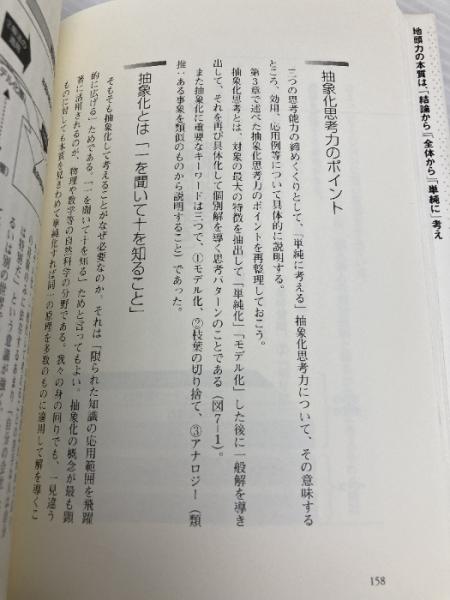 地頭力の本質は、「結論から」「全体から」「単純に」考え
抽象化思考力のポイント
三つの思考能力の締めくくりとして、「単純に考える」抽象化思考力について、その意味する
ところ、効用、応用例等について具体的に説明する。
第3章で述べた抽象化思考力のポイントを再整理しておこう。
抽象化思考とは、対象の最大の特徴を抽出して「単純化」「モデル化」した後に一般解を導き
出して、それを再び具体化して個別解を導く思考パターンのことである（図7―1）。
また抽象化に重要なキーワードは三つで、①モデル化、②枝葉の切り捨て、③アナロジー（類
推：ある事象を類似のものから説明すること）であった。
抽象化とは「一を聞いて十を知ること」
そもそも抽象化して考えることがなぜ必要なのか。それは「限られた知識の応用範囲を飛躍
的に広げる」ためである。「一を聞いて十を知る」ためと言ってもよい。抽象化の概念が最も顕
著に活用されるのが、物理や数学等の自然科学の分野である。我々の身の回りでも、一見違う
ものに対しても本質を見きわめて単純化すれば同一の原理を多数のものに適用して解を導くこ
158